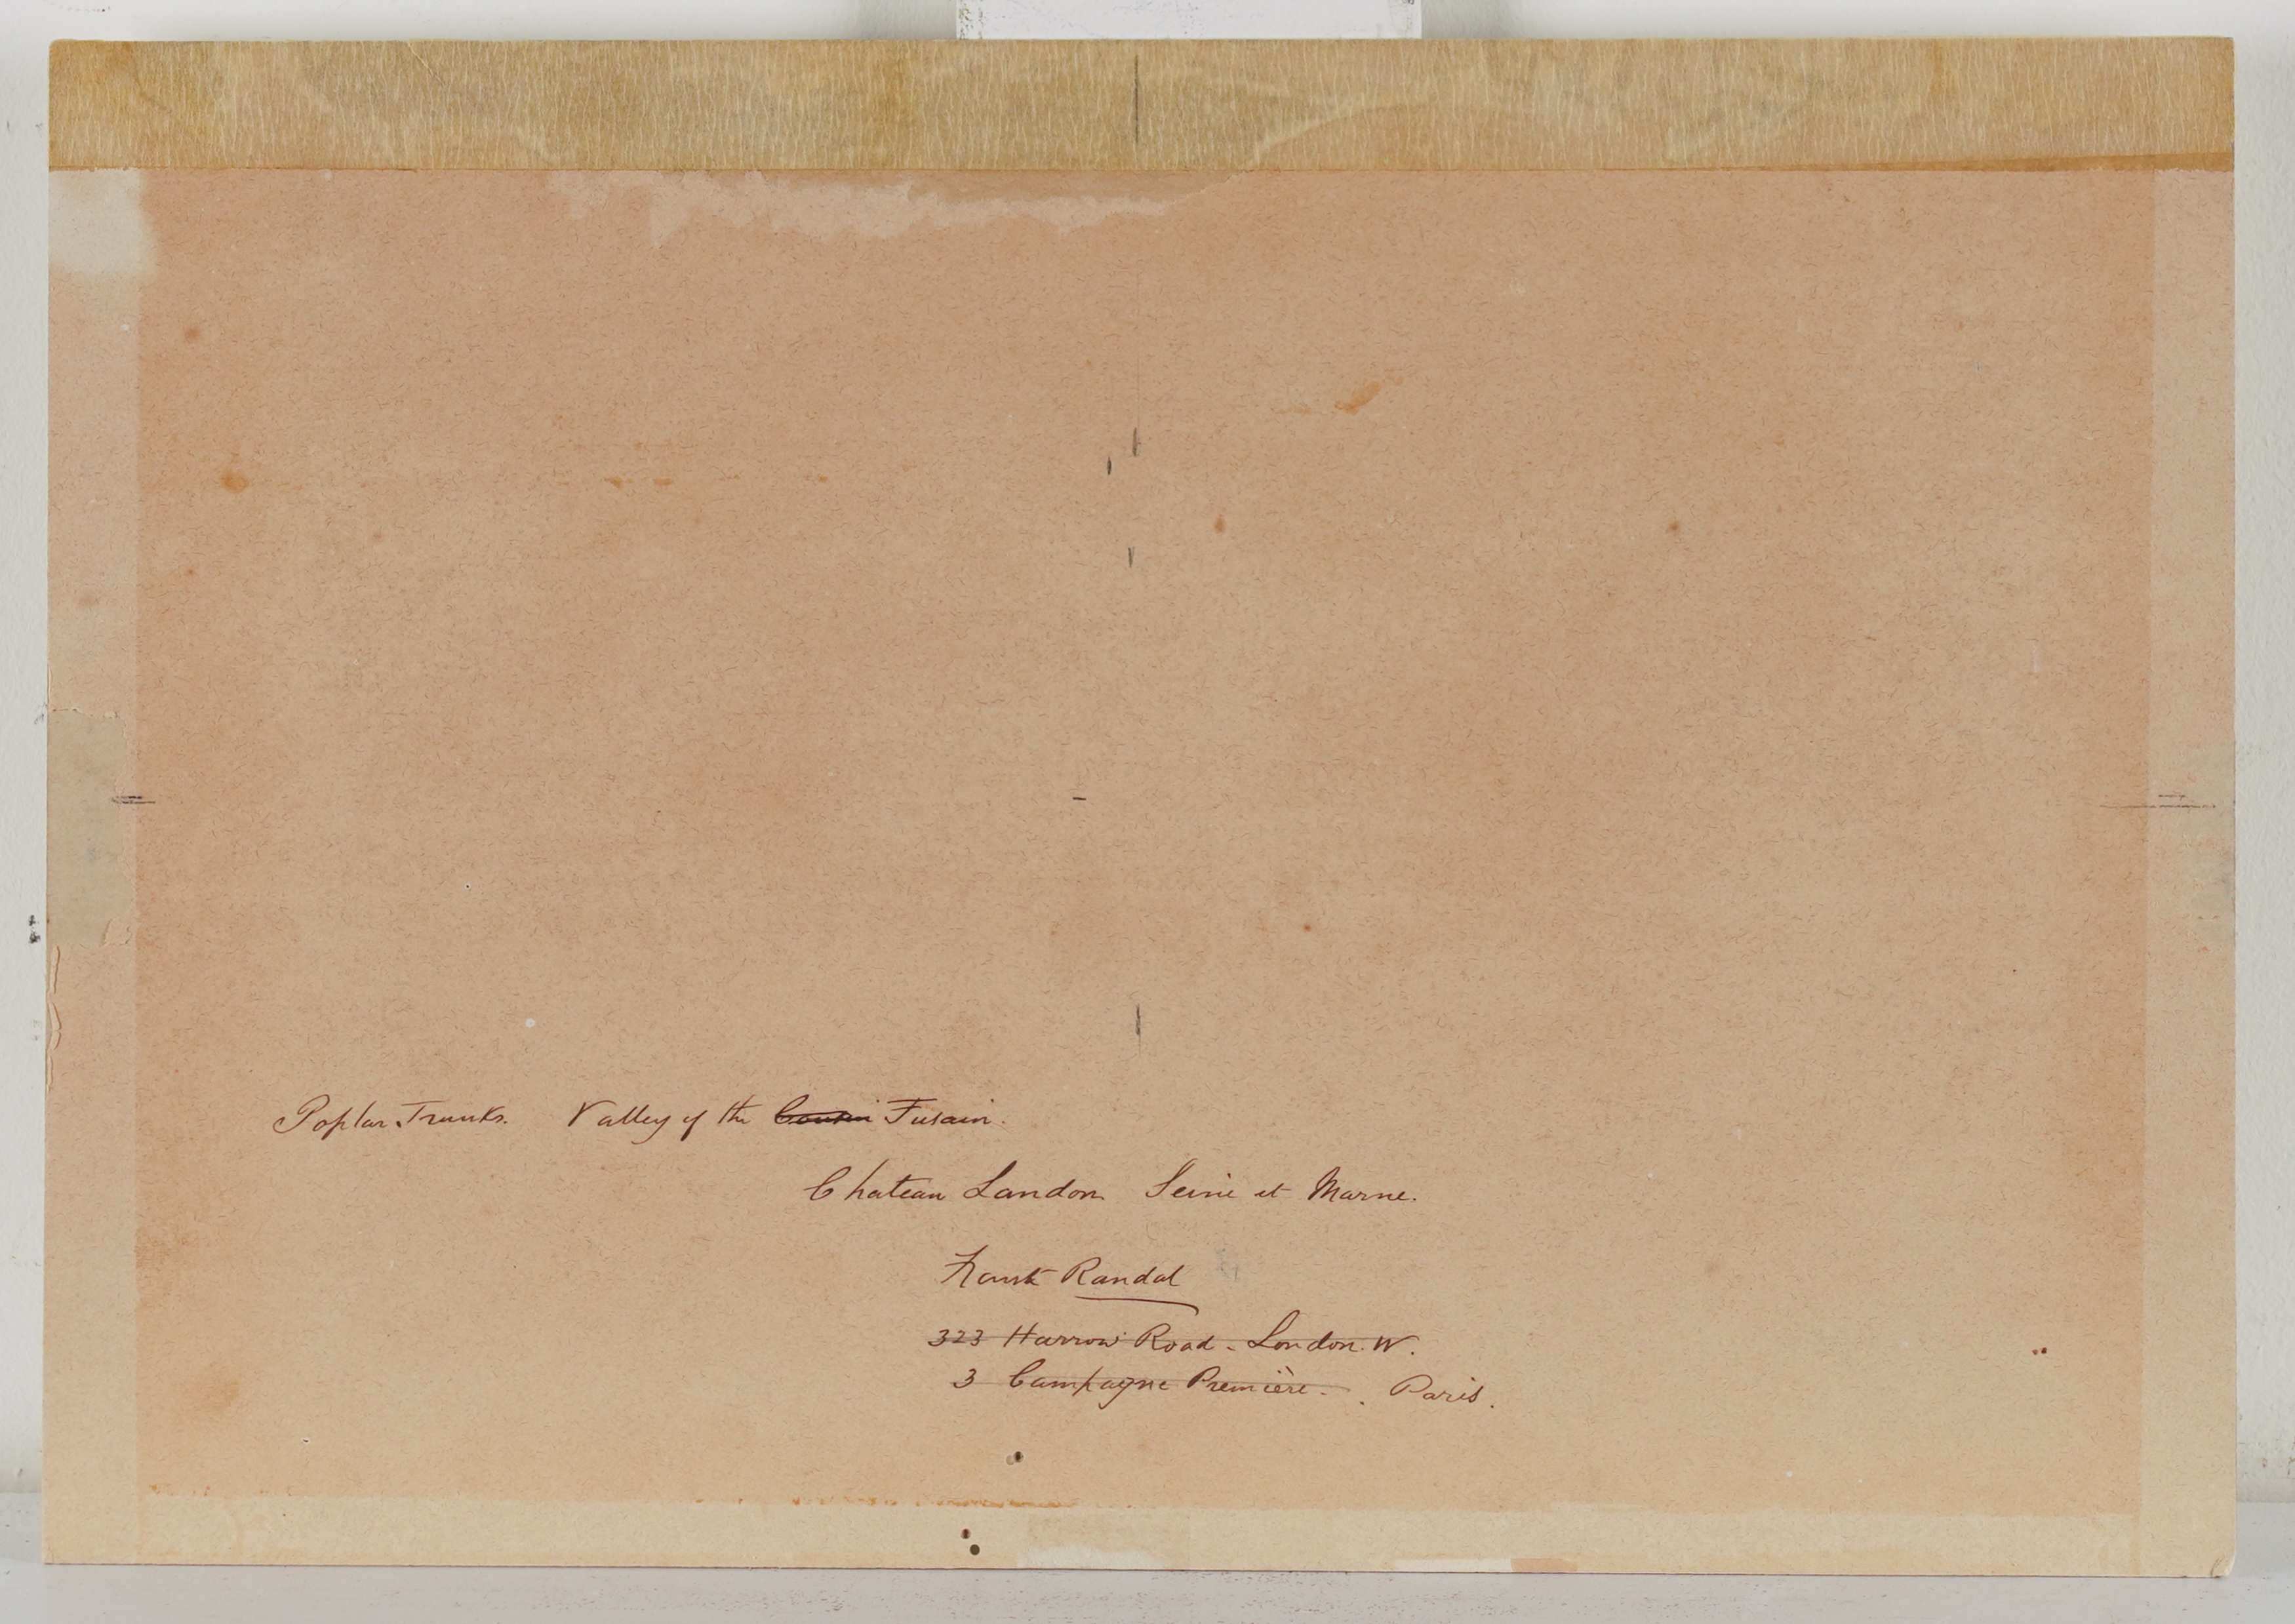 Poplar Trunks. Valley of the Cousin Fusain.
Chateau Landon Seine et Marne.
Frank Randal
323 Harrow Road - London. W.
3 Campagne Première. Paris.